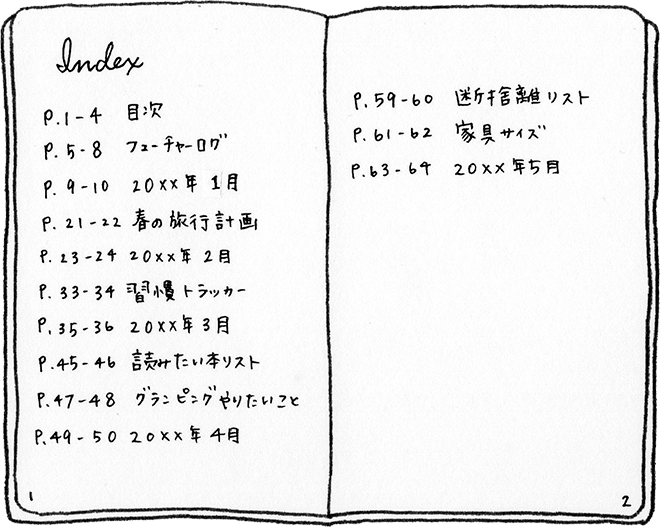 Index
P.1-4 目次
P.5-8 フューチャーログ
P.9-10 20××年 1月
P.21-22 春の旅行計画
P.23-24 20××年 2月
P.33-34 習慣トラッカー
P.35-36 20××年3月
P.45-46 読みたい本リスト
P.47-48 グランピングやりたいこと
P.49-50 20××年 4月
1
P.59-60 断捨離リスト
P.61-62 家具サイズ
P.63-64 20××年5月
2